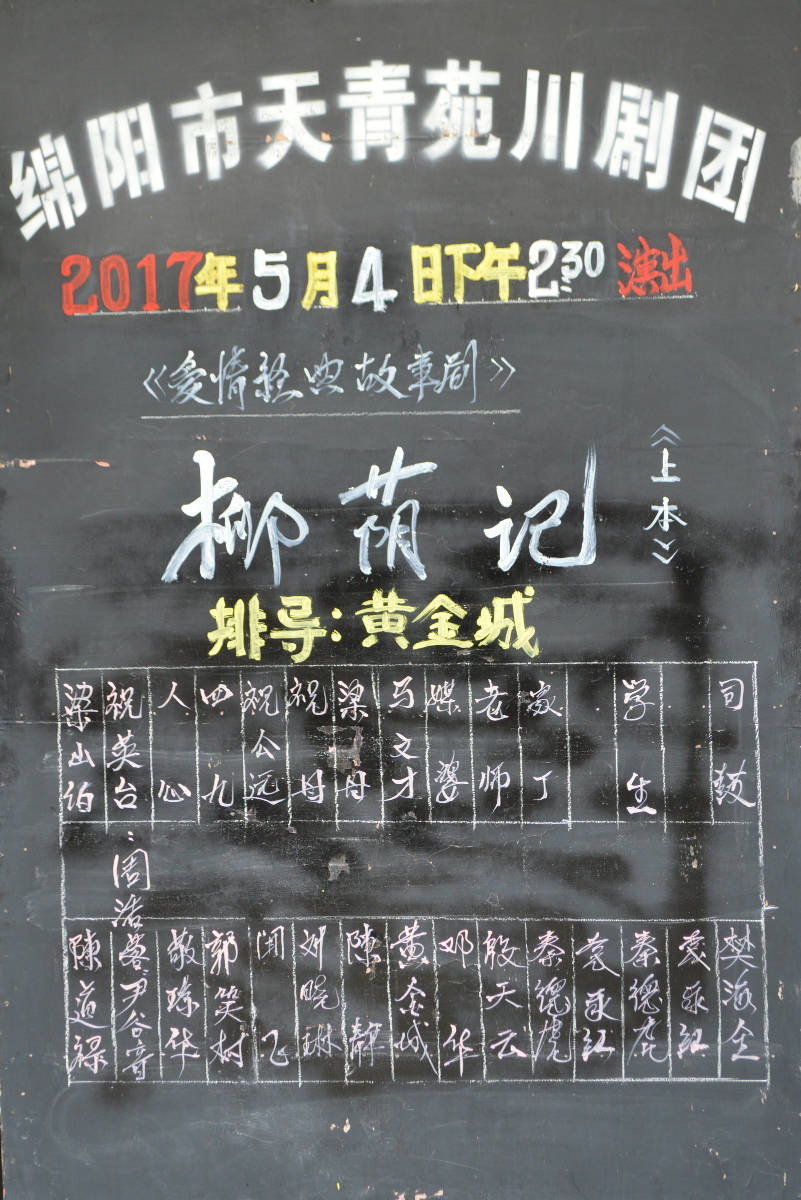 绵阳市天青苑川剧团
2017年5月4日下午2:30演出
《爱情经典故事剧》
柳荫记
《上本》
排导:黄金城
梁山伯
祝英台
人心
四九
祝公远
祝母
梁母
马文才
媒婆
老师
家丁
学生
司鼓
陈道禄
周浩
蓉
尹谷音
敬琼华
郭笑树
闻飞
刘晓琳
陈静
黄金城
邓华
殷天云
秦德虎
秦德虎
樊海全